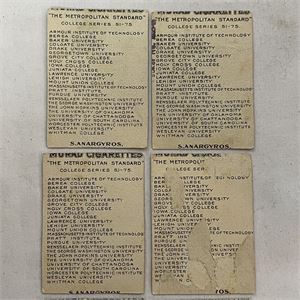 MURAD CIGARETTES
"THE METROPOLITAN STANDARD"
COLLEGE SERIES 51-75
ARMOUR INSTITUTE OF TECHNOLOGY
BEREA COLLEGE
BAKER UNIVERSITY
COLGATE UNIVERSITY
DRAKE UNIVERSITY
GEORGETOWN UNIVERSITY
GROVE CITY COLLEGE
HOLY CROSS COLLEGE
IOWA COLLEGE
JUNIATA COLLEGE
LAWRENCE UNIVERSITY
LEHIGH UNIVERSITY
MOUNT UNION COLLEGE
MASSACHUSETTS INSTITUTE OF TECHNOLOGY
PRATT INSTITUTE
PURDUE UNIVERSITY
RENSSELAER POLYTECHNIC INSTITUTE
THE GEORGE WASHINGTON UNIVERSITY
THE JOHN HOPKINS UNIVERSITY
UNIVERSITY OF CHATTANOOGA
UNIVERSITY OF SOUTH CAROLINA
WORCESTER POLYTECHNIC INSTITUTE
WESLEYAN UNIVERSITY
WHITMAN COLLEGE
S.ANARGYROS.
MURAD CIGARETTES
"THE METROPOLITAN STANDARD"
COLLEGE SERIES 51-75
ARMOUR INSTITUTE OF TECHNOLOGY
BEREA COLLEGE
BAKER UNIVERSITY
COLGATE UNIVERSITY
DRAKE UNIVERSITY
GEORGETOWN UNIVERSITY
GROVE CITY COLLEGE
HOLY CROSS COLLEGE
IOWA COLLEGE
JUNIATA COLLEGE
LAWRENCE UNIVERSITY
LEHIGH UNIVERSITY
MOUNT UNION COLLEGE
MASSACHUSETTS INSTITUTE OF TECHNOLOGY
PRATT INSTITUTE
PURDUE UNIVERSITY
RENSSELAER POLYTECHNIC INSTITUTE
THE GEORGE WASHINGTON UNIVERSITY
THE JOHN HOPKINS UNIVERSITY
UNIVERSITY OF CHATTANOOGA
UNIVERSITY OF SOUTH CAROLINA
WORCESTER POLYTECHNIC INSTITUTE
WESLEYAN UNIVERSITY
WHITMAN COLLEGE
S.ANARGYROS.
MURAD CIGARETTES
"THE METROPOLITAN STANDARD"
COLLEGE SERIES 51-75
ARMOUR INSTITUTE OF TECHNOLOGY
BEREA COLLEGE
BAKER UNIVERSITY
COLGATE UNIVERSITY
DRAKE UNIVERSITY
GEORGETOWN UNIVERSITY
GROVE CITY COLLEGE
HOLY CROSS COLLEGE
IOWA COLLEGE
JUNIATA COLLEGE
LAWRENCE UNIVERSITY
LEHIGH UNIVERSITY
MOUNT UNION COLLEGE
MASSACHUSETTS INSTITUTE OF TECHNOLOGY
PRATT INSTITUTE
PURDUE UNIVERSITY
RENSSELAER POLYTECHNIC INSTITUTE
THE GEORGE WASHINGTON UNIVERSITY
THE JOHN HOPKINS UNIVERSITY
UNIVERSITY OF CHATTANOOGA
UNIVERSITY OF SOUTH CAROLINA
WORCESTER POLYTECHNIC INSTITUTE
WESLEYAN UNIVERSITY
WHITMAN COLLEGE
S.ANARGYROS.
"THE METROPOLITAN STANDARD"
ARMOUR INSTITUTE
BEREA COLLEGE
BAKER UNIVERSITY
COLGATE
DRAKE
UNIVERSITY
GROVE
COLLEGE
HOLY
COLLEGE
IOWA
JUNIATA
LAWRENCE
LEHIGH
MOUNT
MASSACHUSETTS
PRATT
PURDUE
RENSSELAER
INSTITUTE
THE GEORGE
THE JOHN
UNIVERSITY
UNIVERSITY
WORCESTER
WESLEYAN
WHITMAN